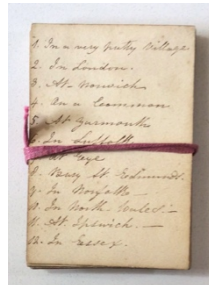 1. In a very pretty Village
2. In London.
3. At Norwich
4. On a Common
5. At Yarmouth
6. In Suffolk
At Eye
8. Bury St. Edmunds.
9. In Norfolk
10. In North Wales. —
11. At Ipswich. —
12. In Essex.